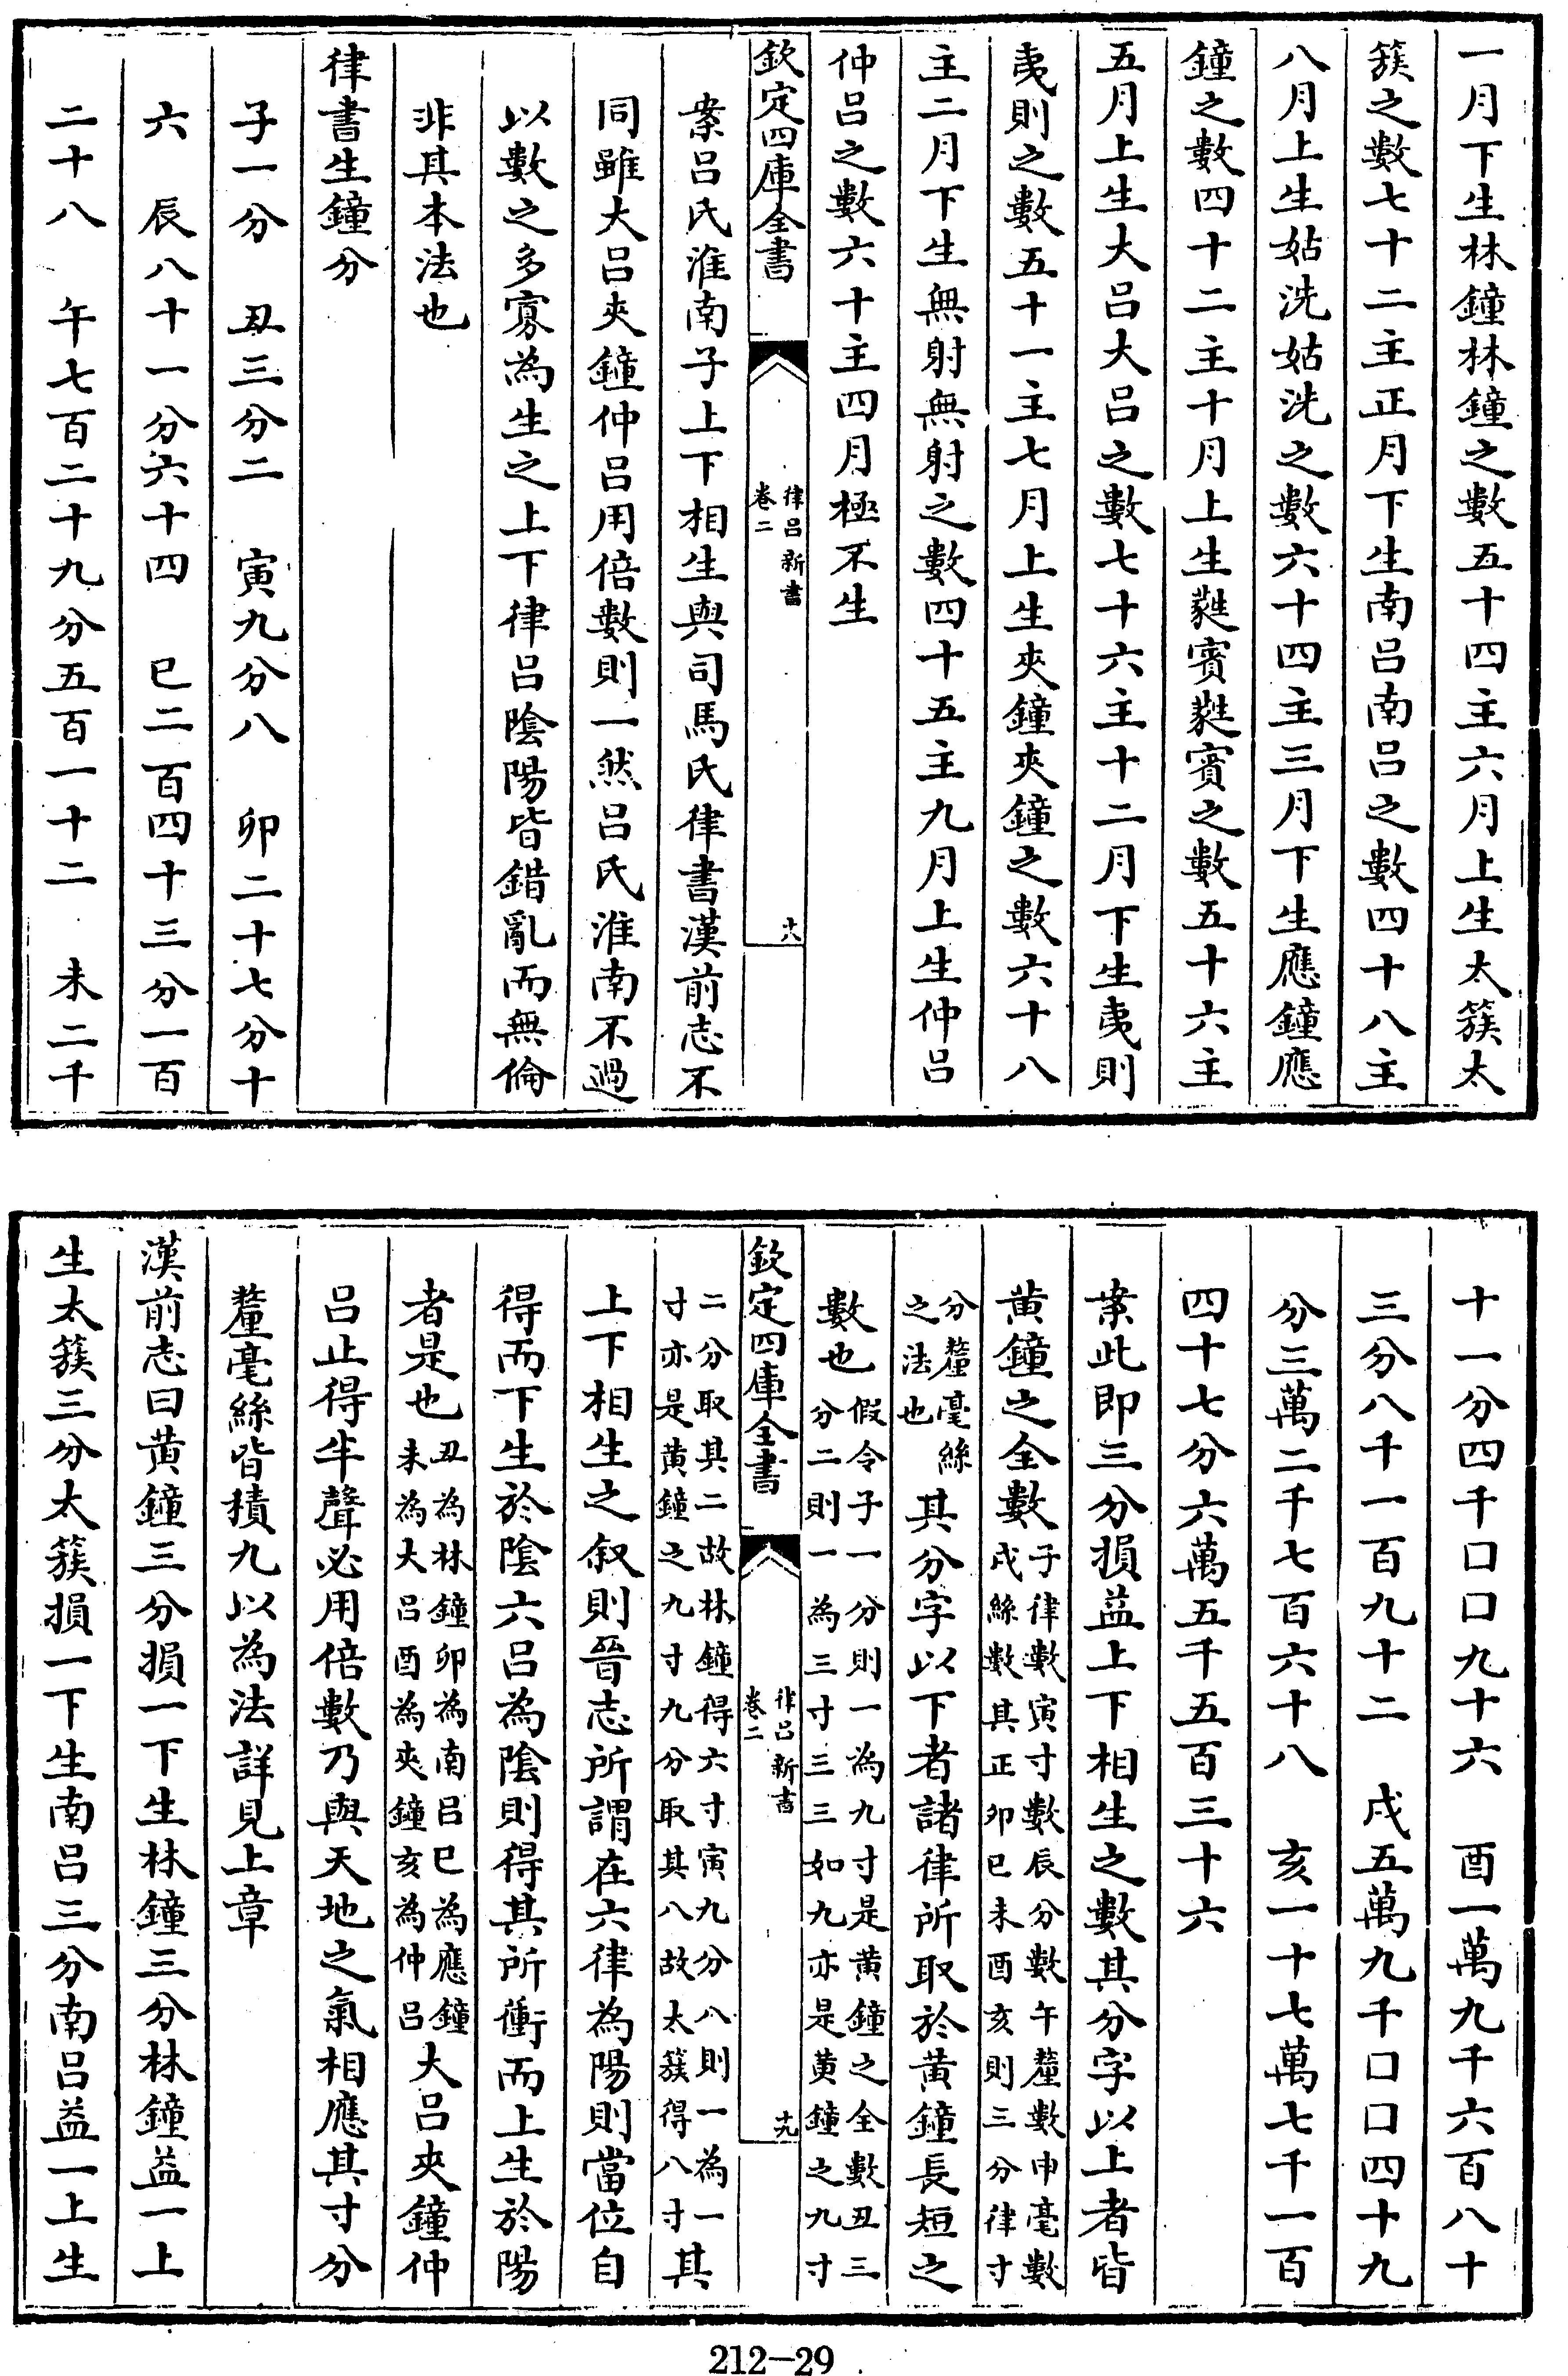 一月下生林鐘林鐘之數五十四主六月上生太簇太
簇之數七十二主正月下生南吕南吕之數四十八主
八月上生姑洗姑洗之數六十四主三月下生應鐘應
鐘之數四十二主十月上生蕤賓蕤賓之數五十六主
五月上生大吕大吕之數七十六主十二月下生夷則
夷則之數五十一主七月上生夾鐘夾鐘之數六十八
主二月下生無射無射之數四十五主九月上生仲吕
仲吕之數六十主四月極不生
欽定四庫全書
律吕新書
卷二
十八
案吕氏淮南子上下相生與司馬氏律書漢前志不
同雖大吕夾鐘仲吕用倍數則一然吕氏淮南不過
以數之多寡為生之上下律吕陰陽皆錯亂而無倫
非其本法也
律書生鐘分
子一分 丑三分二 寅九分八 卯二十七分十
六 辰八十一分六十四 巳二百四十三分一百
二十八 午七百二十九分五百一十二 未二千
十一分四千口口九十六 酉一萬九千六百八十
三分八千一百九十二 戌五萬九千口口四十九
分三萬二千七百六十八 亥一十七萬七千一百
四十七分六萬五千五百三十六
案此即三分損益上下相生之數其分字以上者皆
黃鐘之全數子律數寅寸數辰分數午釐數申毫數戌絲數其正卯巳未酉亥則三分律寸
分釐毫絲之法也其分字以下者諸律所取於黃鐘長短之
數也假令子一分則一為九寸是黃鐘之全數丑三分二則一為三寸三三如九亦是黃鐘之九寸
欽定四庫全書
律吕新書
卷二
十九
二分取其二故林鐘得六寸寅九分八則一為一其寸亦是黃鐘之九寸九分取其八故太簇得八寸
上下相生之叙則晉志所謂在六律為陽則當位自
得而下生於陰六吕為陰則得其所衝而上生於陽
者是也丑為林鐘卯為南吕巳為應鐘未為大吕酉為夾鐘亥為仲吕大吕夾鐘仲
吕止得半聲必用倍數乃與天地之氣相應其寸分
釐毫絲皆積九以為法詳見上章
漢前志曰黃鐘三分損一下生林鐘三分林鐘益一上
生太簇三分太簇損一下生南吕三分南吕益一上生
212-29